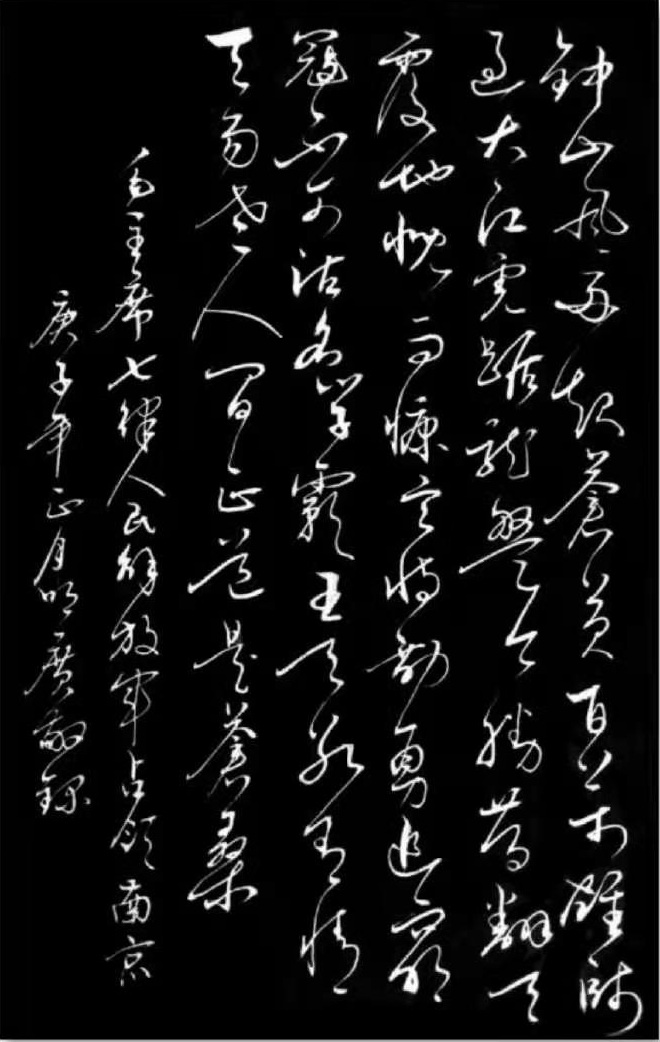 钟山风雨起蒼黄百万雄师
过大江虎踞龙盘今胜昔翻天
覆地慨而慷宜将剩勇追穷
寇不可沽名学霸王天若有情
天亦老人间正道是蒼桑
毛主席七律人民解放军占领南京
庚子年正月明广敬录